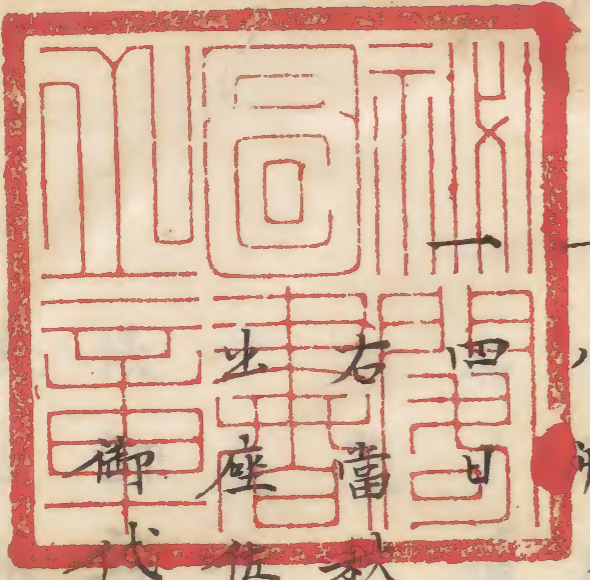 祕閣
圖書
之章
一四日
右當秋
出座
御代